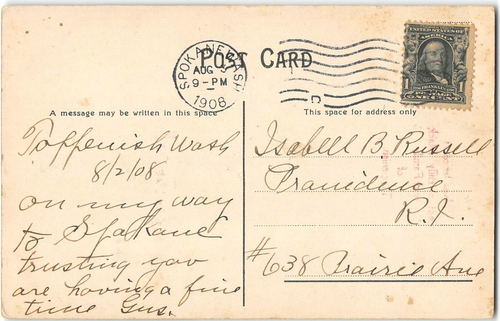 POST CARD
SPOKANE WASH
AUG 3
9-PM
1908
UNITED STATES OF AMERICA
FRANKLIN
POSTAGE
ONE CENT
A message may be written in this space
This space for address only
Toppenish Wash
8/2/08
on my way
to Spokane
trusting you
are having a fine
time Gus.
Isabell B Russell
Providence
R.I.
#638 Prairie Ave